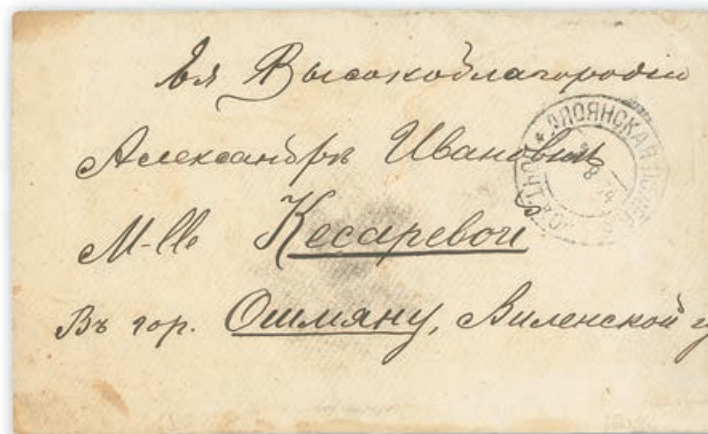 Ея Высокоблагородiю
Александрѣ Ивановнѣ
M-lle Кесаревой
Въ гор. Ошмяну, Виленской г